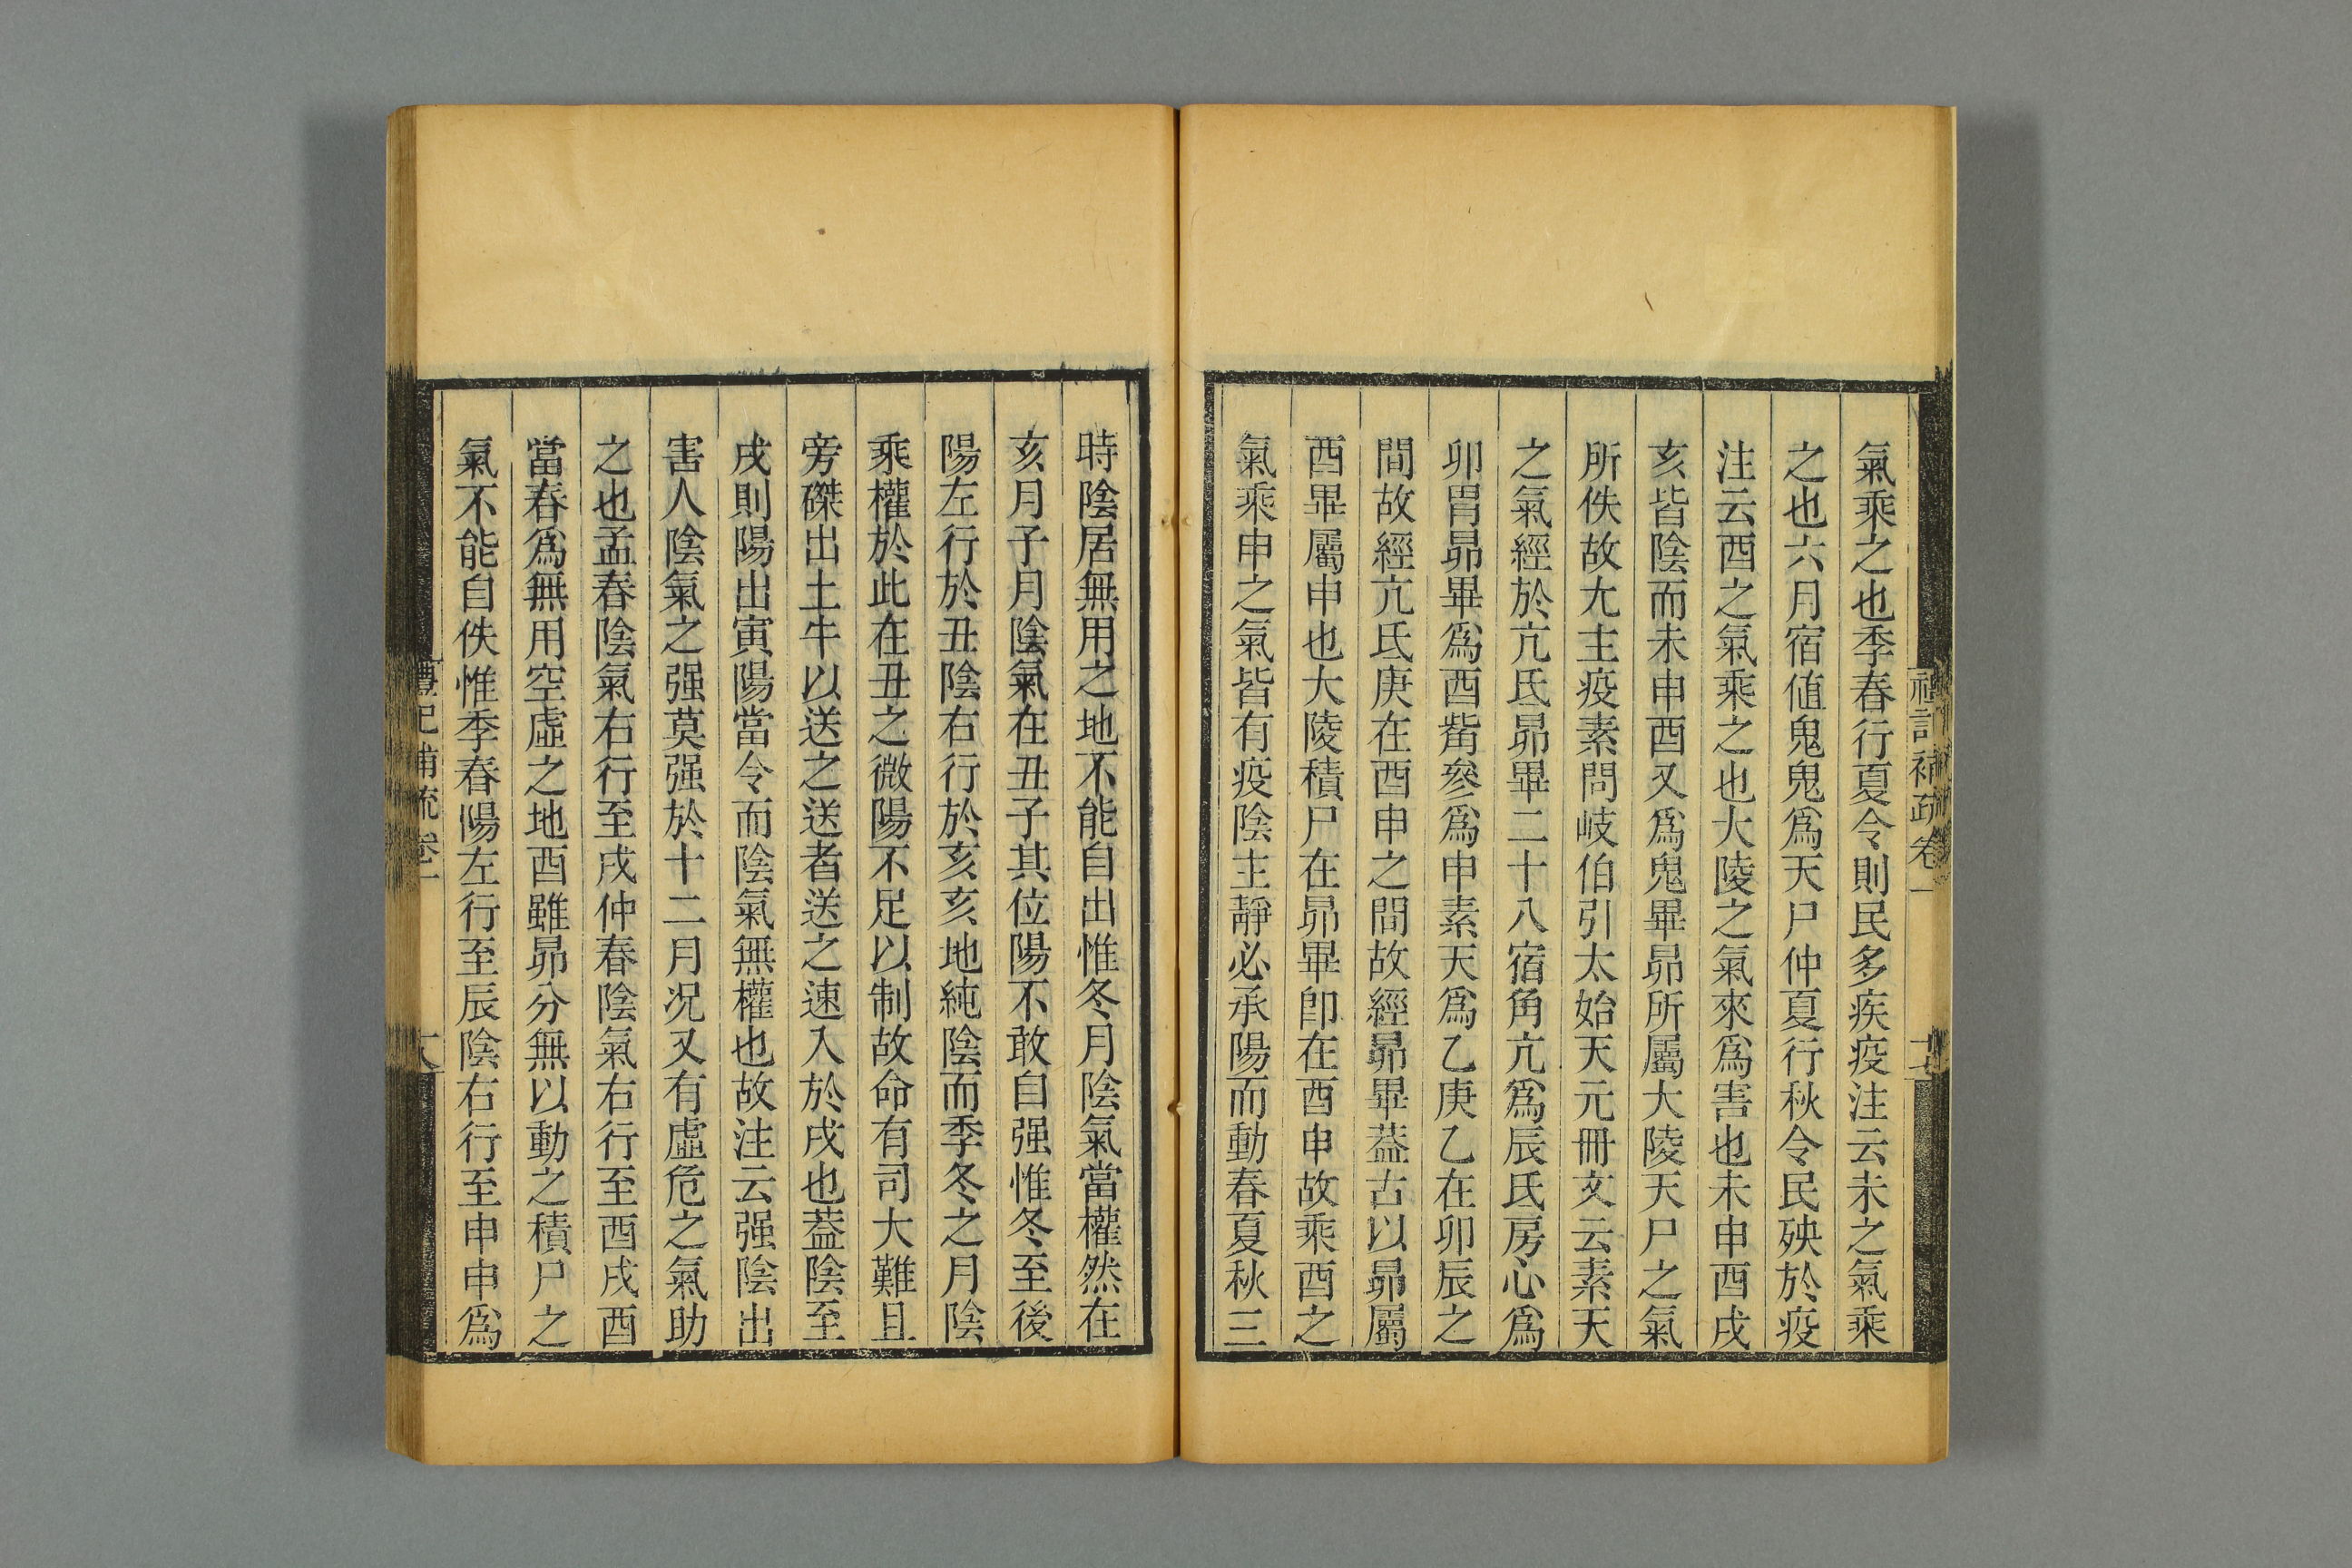 禮記補疏卷一
十七
氣乘之也季春行夏令則民多疾疫注云未之氣乘
之也六月宿値鬼鬼爲天尸仲夏行秋令民殃於疫
注云酉之氣乘之也大陵之氣來爲害也未申酉戌
亥皆陰而未申酉又爲鬼畢昴所屬大陵天尸之氣
所佚故尢主疫素問岐伯引太始天元冊文云素天
之氣經於亢氐昴畢二十八宿角亢爲辰氐房心爲
卯胃昴畢爲酉觜參爲申素天爲乙庚乙在卯辰之
間故經亢氐庚在酉申之間故經昴畢葢古以昴屬
酉畢屬申也大陵積尸在昴畢卽在酉申故乘酉之
氣乘申之氣皆有疫陰主靜必承陽而動春夏秋三
時陰居無用之地不能自出惟冬月陰氣當權然在
亥月子月陰氣在丑子其位陽不敢自强惟冬至後
陽左行於丑陰右行於亥亥地純陰而季冬之月陰
乘權於此在丑之微陽不足以制故命有司大難且
旁磔出土牛以送之送者送之速入於戌也葢陰至
戌則陽出寅陽當令而陰氣無權也故注云强陰出
害人陰氣之强莫强於十二月况又有虛危之氣助
之也孟春陰氣右行至戌仲春陰氣右行至酉戌酉
當春爲無用空虛之地酉雖昴分無以動之積尸之
氣不能自佚惟季春陽左行至辰陰右行至申申爲
禮記補疏卷一